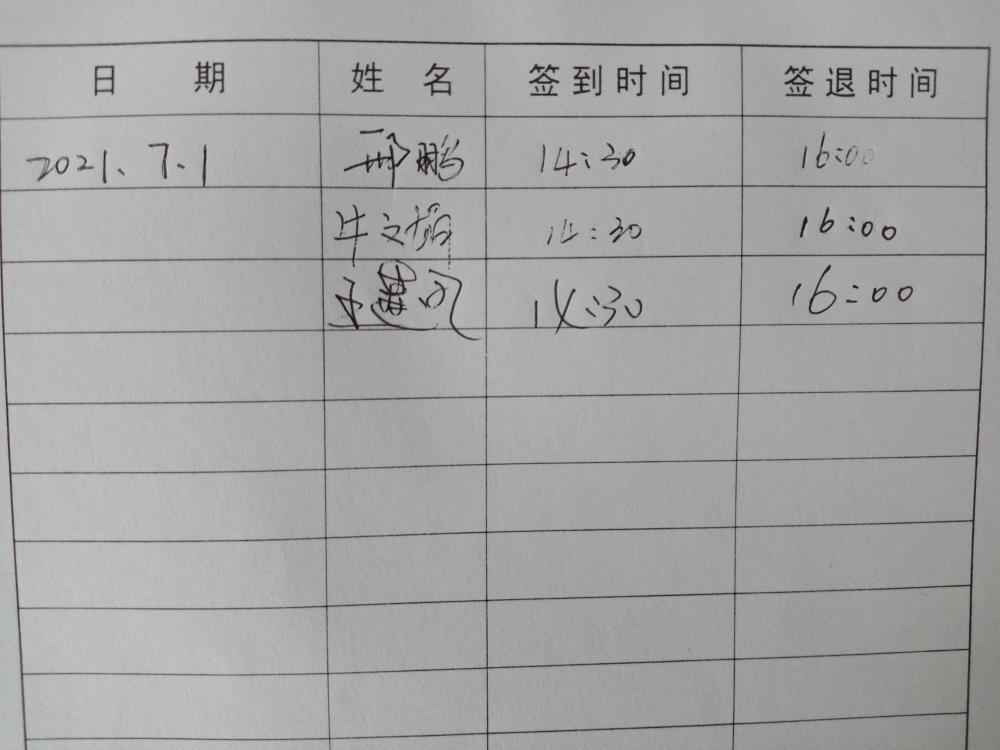 日 期 姓 名 签到时间 签退时间
2021.7.1 邢鹏 14:30 16:00
牛文娟 14:30 16:00
王建 14:30 16:00